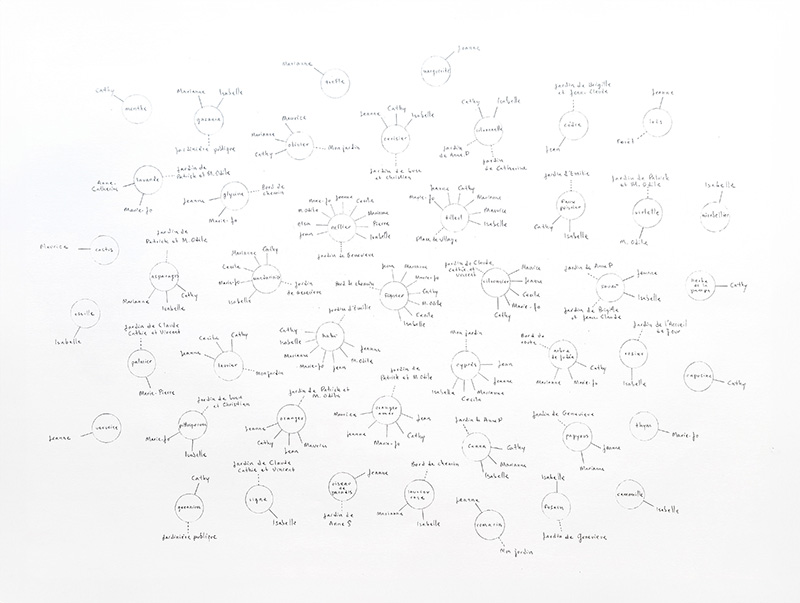 Jeanne
Marianne
ortie
marguerite
Cathy
menthe
Marianne
Isabelle
gazania
Jardinière publique
Maurice
Marianne
olivier
Cathy
Mon jardin
Cathy
Jeanne
Isabelle
cerisier
Cathy
Isabelle
ciboulette
Jardin de Anne P
Jardin de Catherine
Jardin de Brigitte
et Jean-Claude
cèdre
Jean
Jeanne
Forêt
Anne-
Catherine
lavande
Jardin de
Patrick et M. Odile
Marie-Jo
Jeanne
glycine
Bord de
chemin
Marie-Jo
Anne-Jo
Jeanne
Cécile
M. Odile
Marianne
elsa
Pierre
Jean
Isabelle
néflier
Jardin de Geneviève
Jeanne
Cathy
Marie-Jo
Marianne
M. Odile
Maurice
tilleul
Isabelle
Cécile
Place du village
Jardin d'Emilie
Cathy
Isabelle
Jardin de Patrick
et M. Odile
violette
M. Odile
Isabelle
mirabellier
Maurice
cactus
Jardin de
Patrick et M. Odile
asperges
Marianne
Cathy
Isabelle
Marianne
Cathy
Cécile
Marie-Jo
Isabelle
Jardin
de Geneviève
Jean
Marianne
Marie-Jo
Bord de chemin
figuier
Cathy
M. Odile
Cécile
Isabelle
Jardin de Claude
Cathie et Vincent
citronnier
Maurice
Jeanne
Cécile
Marie-Jo
Cathy
Jardin de Anne P
Jeanne
Isabelle
Jardin de Brigitte
et Jean-Claude
herbe
de la
pampa
Cathy
oseille
Isabelle
Jardin de Claude
Cathie et Vincent
palmier
Marie-Pierre
Cécile
Cathy
Jeanne
laurier
Mon jardin
Jardin d'Emilie
Cathy
Isabelle
Jeanne
Marianne
Marie-Jo
Jean
M. Odile
Mon jardin
cyprès
Jean
Jeanne
Isabelle
Marianne
Cécile
Bord de
route
arbre
de Judée
Cathy
Marianne
Marie-Jo
Jardin de l'Accueil
de jour
rosier
Isabelle
capucine
Cathy
Jeanne
verveine
Jardin de Lucie
et Christian
pittosporum
Marie-Jo
Isabelle
Jardin de Patrick et
M. Odile
oranger
Jeanne
Cathy
Jean
Maurice
Jardin de
Patrick et M. Odile
oranger
amer
Maurice
Jean
Jeanne
Marie-Jo
Cathy
Jardin de Anne P
canna
Cathy
Marianne
Isabelle
Jardin de Geneviève
papyrus
Jeanne
Marianne
thym
Marie-Jo
Cathy
géranium
Jardinière publique
Jardin de Claude
Cathie et Vincent
vigne
Isabelle
oiseau
de paradis
Jeanne
Jardin de
Anne S
Bord de chemin
laurier
rose
Marianne
Isabelle
Jeanne
romarin
Mon jardin
Isabelle
fusain
Jardin de Geneviève
camomille
Isabelle